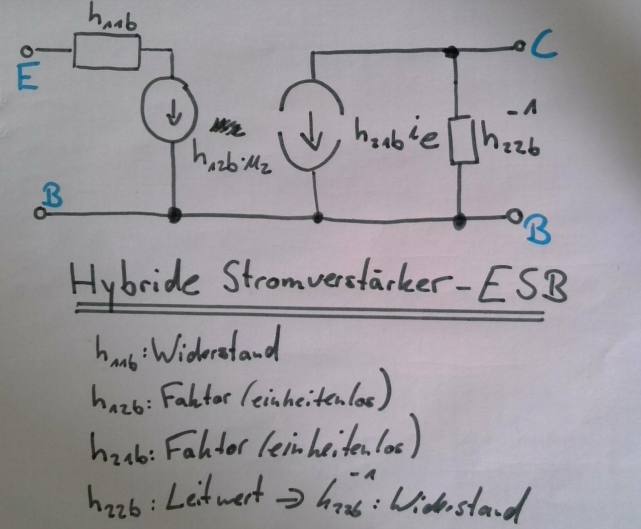 h11b
E
C
h12b·u2
h21b ie
h22b^-1
B
B
Hybride Stromverstärker-ESB
h11b: Widerstand
h12b: Faktor (einheitenlos)
h21b: Faktor (einheitenlos)
h22b: Leitwert → h22b^-1: Widerstand